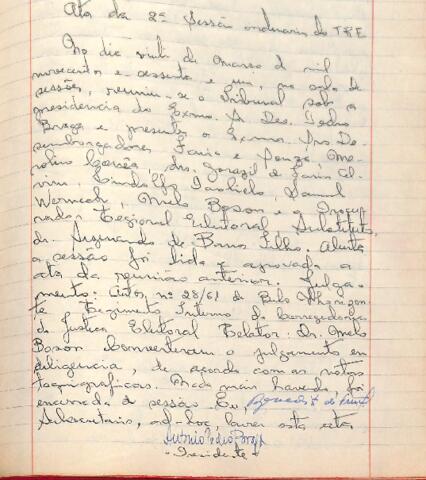 Ata da 2ª Sessão ordinaria do TRE
No dia vinte de Março de mil
novecentos e sessenta e um, na sala de
sessões, reuniu-se o Tribunal sob a
presidencia do Exmo. A Des. Pedro
Braga e presentes o Exmos. Srs De-
sembargadores Faria e Souza, Me-
rolino Corrêa, drs. Gorazil de Faria Al-
vim, Cindolfo Paoliello, Samuel
Werneck, Melo Boson e o Procu-
rador Regional Eleitoral, Substituto,
dr. Sizenando de Barros Filho. Aberta
a sessão foi lida e aprovada a
ata da reunião anterior. Julga-
mento: Autos nº 28/61 de Belo Horizon-
te Regimento Interno da Corregedoria
da Justiça Eleitoral Relator: Dr. Melo
Boson Converteram o julgamento em
diligencia, de acordo com as notas
taquigraficas. Nada mais havendo, foi
encerrada a sessão. Eu,
Subsecretario, ad-hoc, lavrei esta ata
Antonio Pedro Braga
- Presidente -